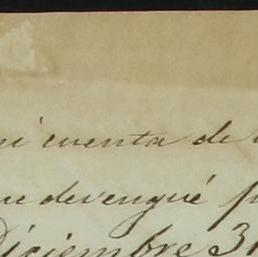 mi cuenta de
que devengué
Diciembre 31